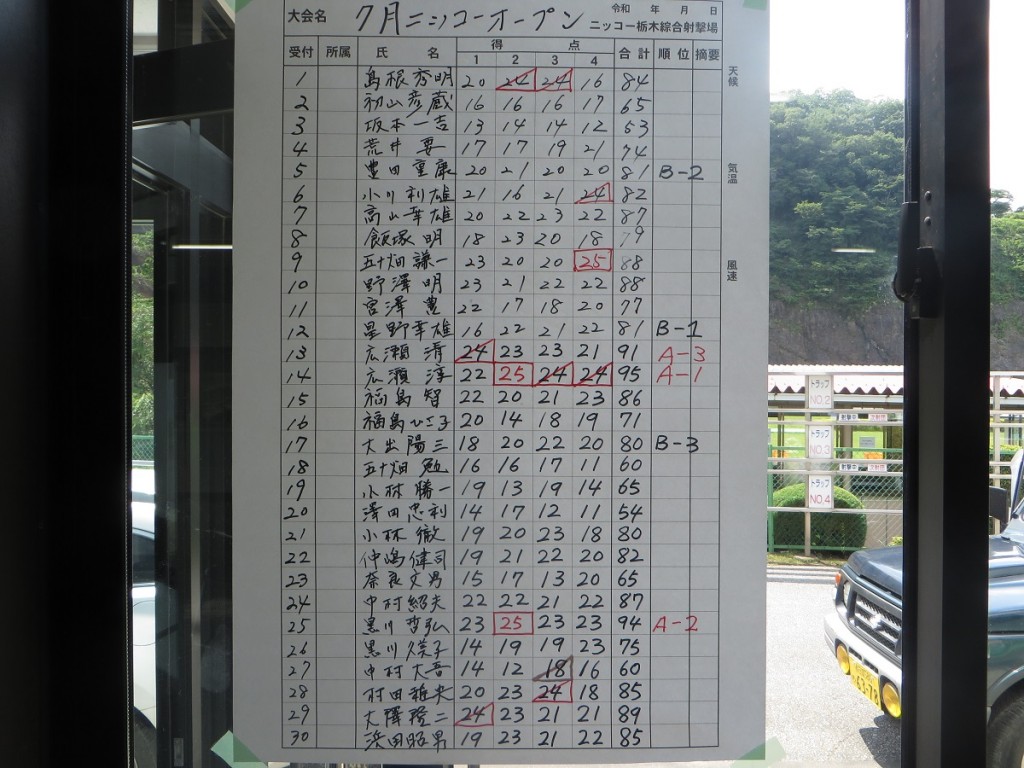 大会名 7月ニッコーオープン 令和 年 月 日 ニッコー栃木綜合射撃場
受付 所属 氏 名 得 点 合計 順位 摘要
1 2 3 4
1 島根秀明 20 24 24 16 84
2 初山彦蔵 16 16 16 17 65
3 坂本一吉 13 14 14 12 53
4 荒井要 17 17 19 21 74
5 豊田重康 20 21 20 20 81 B-2
6 小川利雄 21 16 21 24 82
7 高山幸雄 20 22 23 22 87
8 飯塚明 18 23 20 18 79
9 五十畑謙一 23 20 20 25 88
10 野澤明 23 21 22 22 88
11 宮澤豊 22 17 18 20 77
12 星野幸雄 16 22 21 22 81 B-1
13 広瀬清 24 23 23 21 91 A-3
14 広瀬淳 22 25 24 24 95 A-1
15 福島智 22 20 21 23 86
16 福島ひさ子 20 14 18 19 71
17 大出陽三 18 20 22 20 80 B-3
18 五十畑勉 16 16 17 11 60
19 小林勝一 19 13 19 14 65
20 澤田忠利 14 17 12 11 54
21 小林徹 19 20 23 18 80
22 仲嶋健司 19 21 22 20 82
23 奈良丈男 15 17 13 20 65
24 中村紹夫 22 22 21 22 87
25 黒川哲弘 23 25 23 23 94 A-2
26 黒川久美子 14 19 19 23 75
27 中村大吾 14 12 18 16 60
28 村田雅央 20 23 24 18 85
29 大澤隆二 24 23 21 21 89
30 浜田昭男 19 23 21 22 85
天候
気温
風速
トラップ
NO.2
射撃中
トラップ
NO.3
射撃中
トラップ
NO.4
63-78